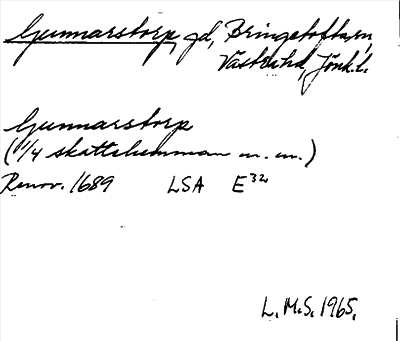 Gunnarstorp, gd, Bringetofta sn,
Västra hd, Jönk. l.
Gunnarstorp
(1/4 skattehemman m. m.)
Renov. 1689 LSA E32
L. M. S. 1965.